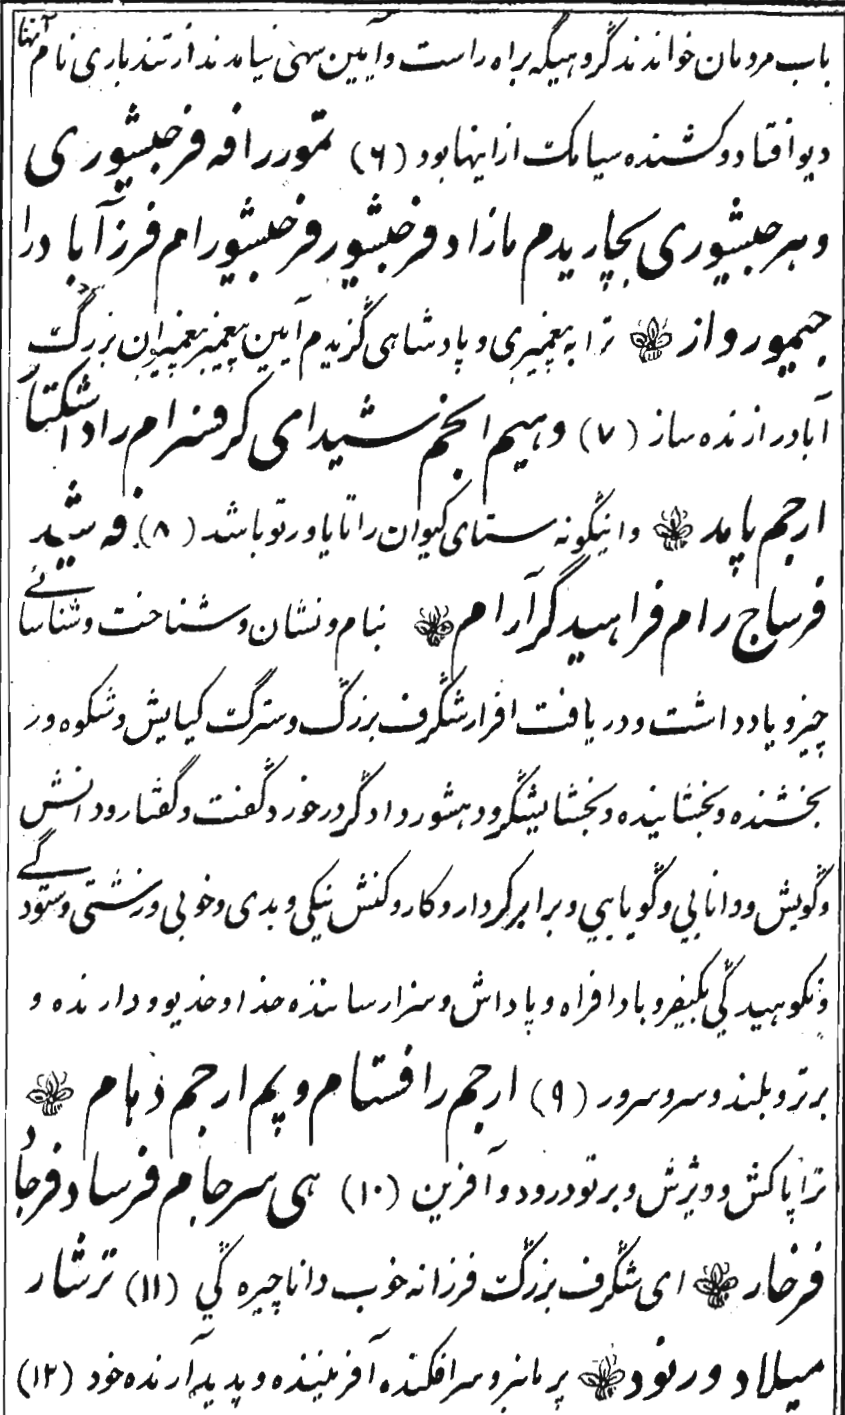 باب مردمان خواندند گروهیکه براه راست و آیین سهی نیامدند از تندباری نام آنها
دیو افتاد و کشنده سیامک از اینها بود (۶) تمور را فه فرجیشوری
و هرجیشوری بچاریدم مازاد فرجیشور فرجیشورام فرزآباد را
جیمور واز ترا به پیغمبری و پادشاهی گزیدم آیین پیغمبر پیغمبران بزرگ
آباد را زنده ساز (۷) و هیم انجم نشیدای کرفسرام را دا اشکتا
ارجم پامد و اینگونه ستای کیوان را تا یاور تو باشد (۸) فه شید
فرساج رام فراهیدگر آرام بنام و نشان و شناخت و شناسائے
چیز و یادداشت و دریافت افرار شگرف بزرگ و سترگ کیایش و شکوه ور
بخشنده و بخشاینده و بخشایشگر و دهشور دادگر در خورد گفت و گفتار و دانش
و گویش و دانایی و گویایی و برابر کردار و کار و کنش نیکی و بدی و خوبی و زشتی و ستودگے
و نکوهیدگی بکیفر و بادافراه و پاداش و سزا رساننده خدا و خدیو و دارنده و
برتر و بلند و سر و سرور (۹) ارجم را فستام و پم ارجم ذهام
ترا پاکش و ویژش و بر تو درود و آفرین (۱۰) هی سرجام فرساد فرجاد
فرخار ای شگرف بزرگ فرزانه خوب دانا چیره گی (۱۱) ترشار
میلاد ورنود پرمانبر و سرافکنده آفریننده و پدید آرنده خود (۱۲)